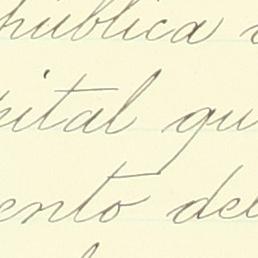 pública
pital qu
ento del